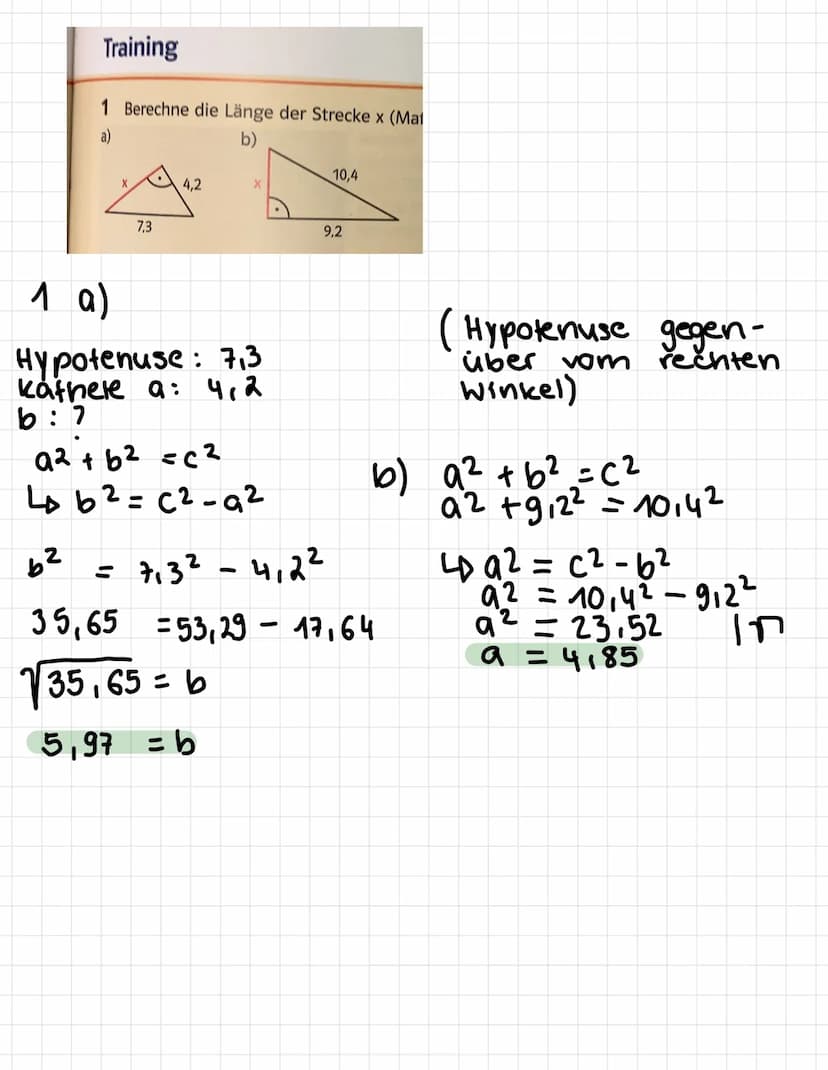 Training
1 Berechne die Länge der Strecke x (Maß
a)
b)
x
4,2
7,3
x
10,4
9,2
1 a)
Hypotenuse: 7,3
Kathete a: 4,2
b: ?
a² + b² = c²
↳ b² = c² - a²
b² = 7,3² - 4,2²
35,65 = 53,29 - 17,64
√35,65 = b
5,97 = b
(Hypotenuse gegen-
über vom rechten
Winkel)
b) a² + b² = c²
a² + 9,2² = 10,4²
↳ a² = c² - b²
a² = 10,4² - 9,2²
a² = 23,52 |√
a = 4,85